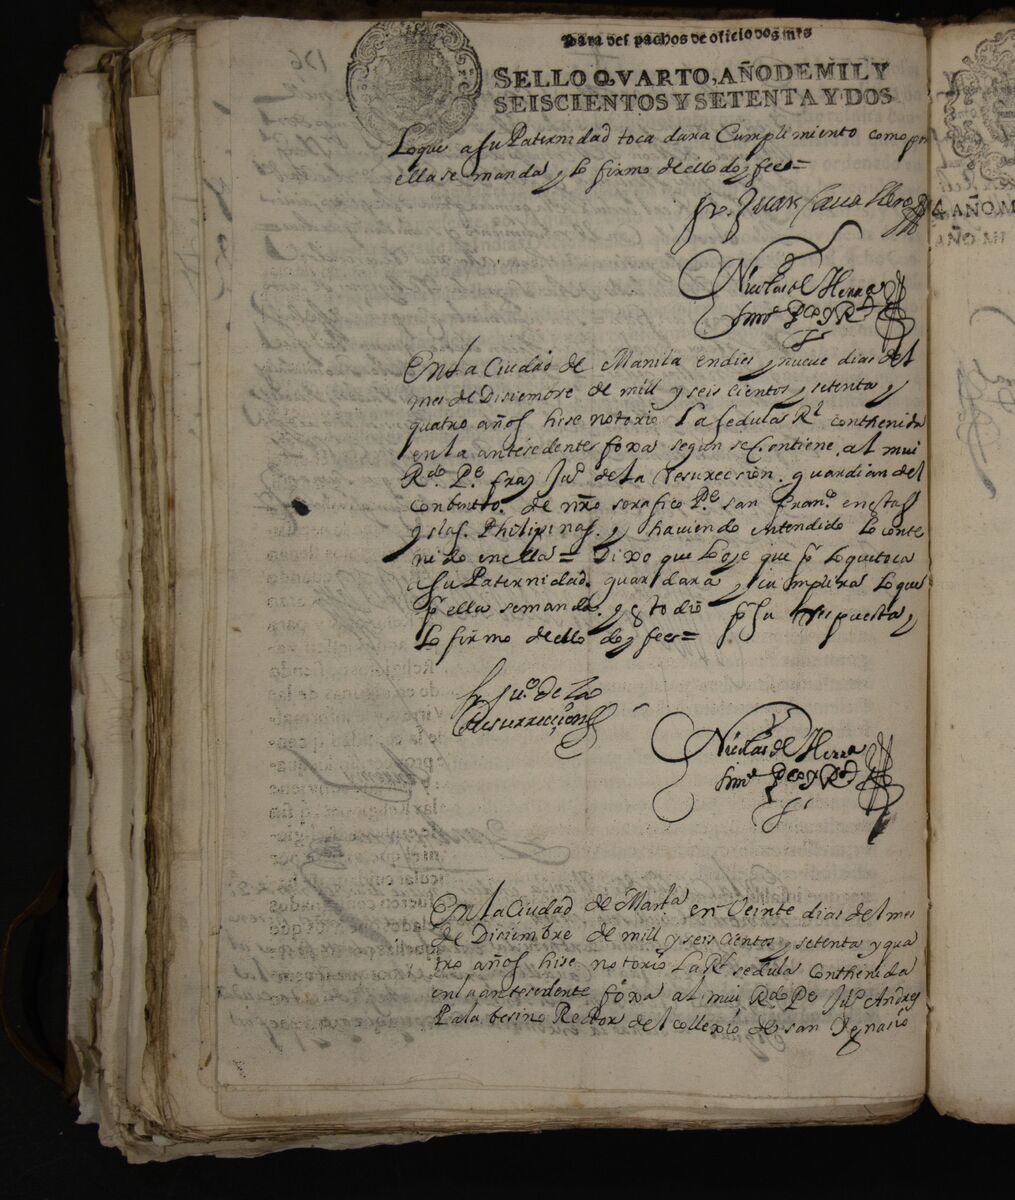 Para des pachos de oficio dos mrs
SELLO QVARTO, AÑO DE MIL Y
SEISCIENTOS Y SETENTA Y DOS
Loque a su Paternidad toca dara Cumplimiento como por
ella se manda y lo firmo de ello doy fee=
fr. Juan Cavallero
Nicolas de Herrera
En la Ciudad de Manila en dies y nueve dias del
mes de Disiembre de mill y seis cientos y setenta y
quatro años hise notorio la sedulas Rl conthenida
en la antesedentes foxa segun se Contiene al mui
Rdo. Pe. fray Juo de la resurecsion guardian del
conbento. de nro serafico Pe. san franco. en estas
yslas. Philipinas. y haviendo entendido lo conte
nido en ellas= Dixo que lo oye que pr lo que toca
a su Paternidad guardara y cumplira lo que
pr ella se manda. y esto dio pr su respuesta y
lo firmo de ello doy fee=
fr Juo de la
Resurreccion
Nicolas de Herra
En la Ciudad de Manla en Veinte dias del mes
de Disiembre de mill y seis Cientos y setenta y qua
tro años hise notorio La Rl sedula Conthenida
en la antesedente foxa al mui Rdo Pe Andres
Palabesino Rector del collexio de san Ygnasio
AÑO M
AÑO MI